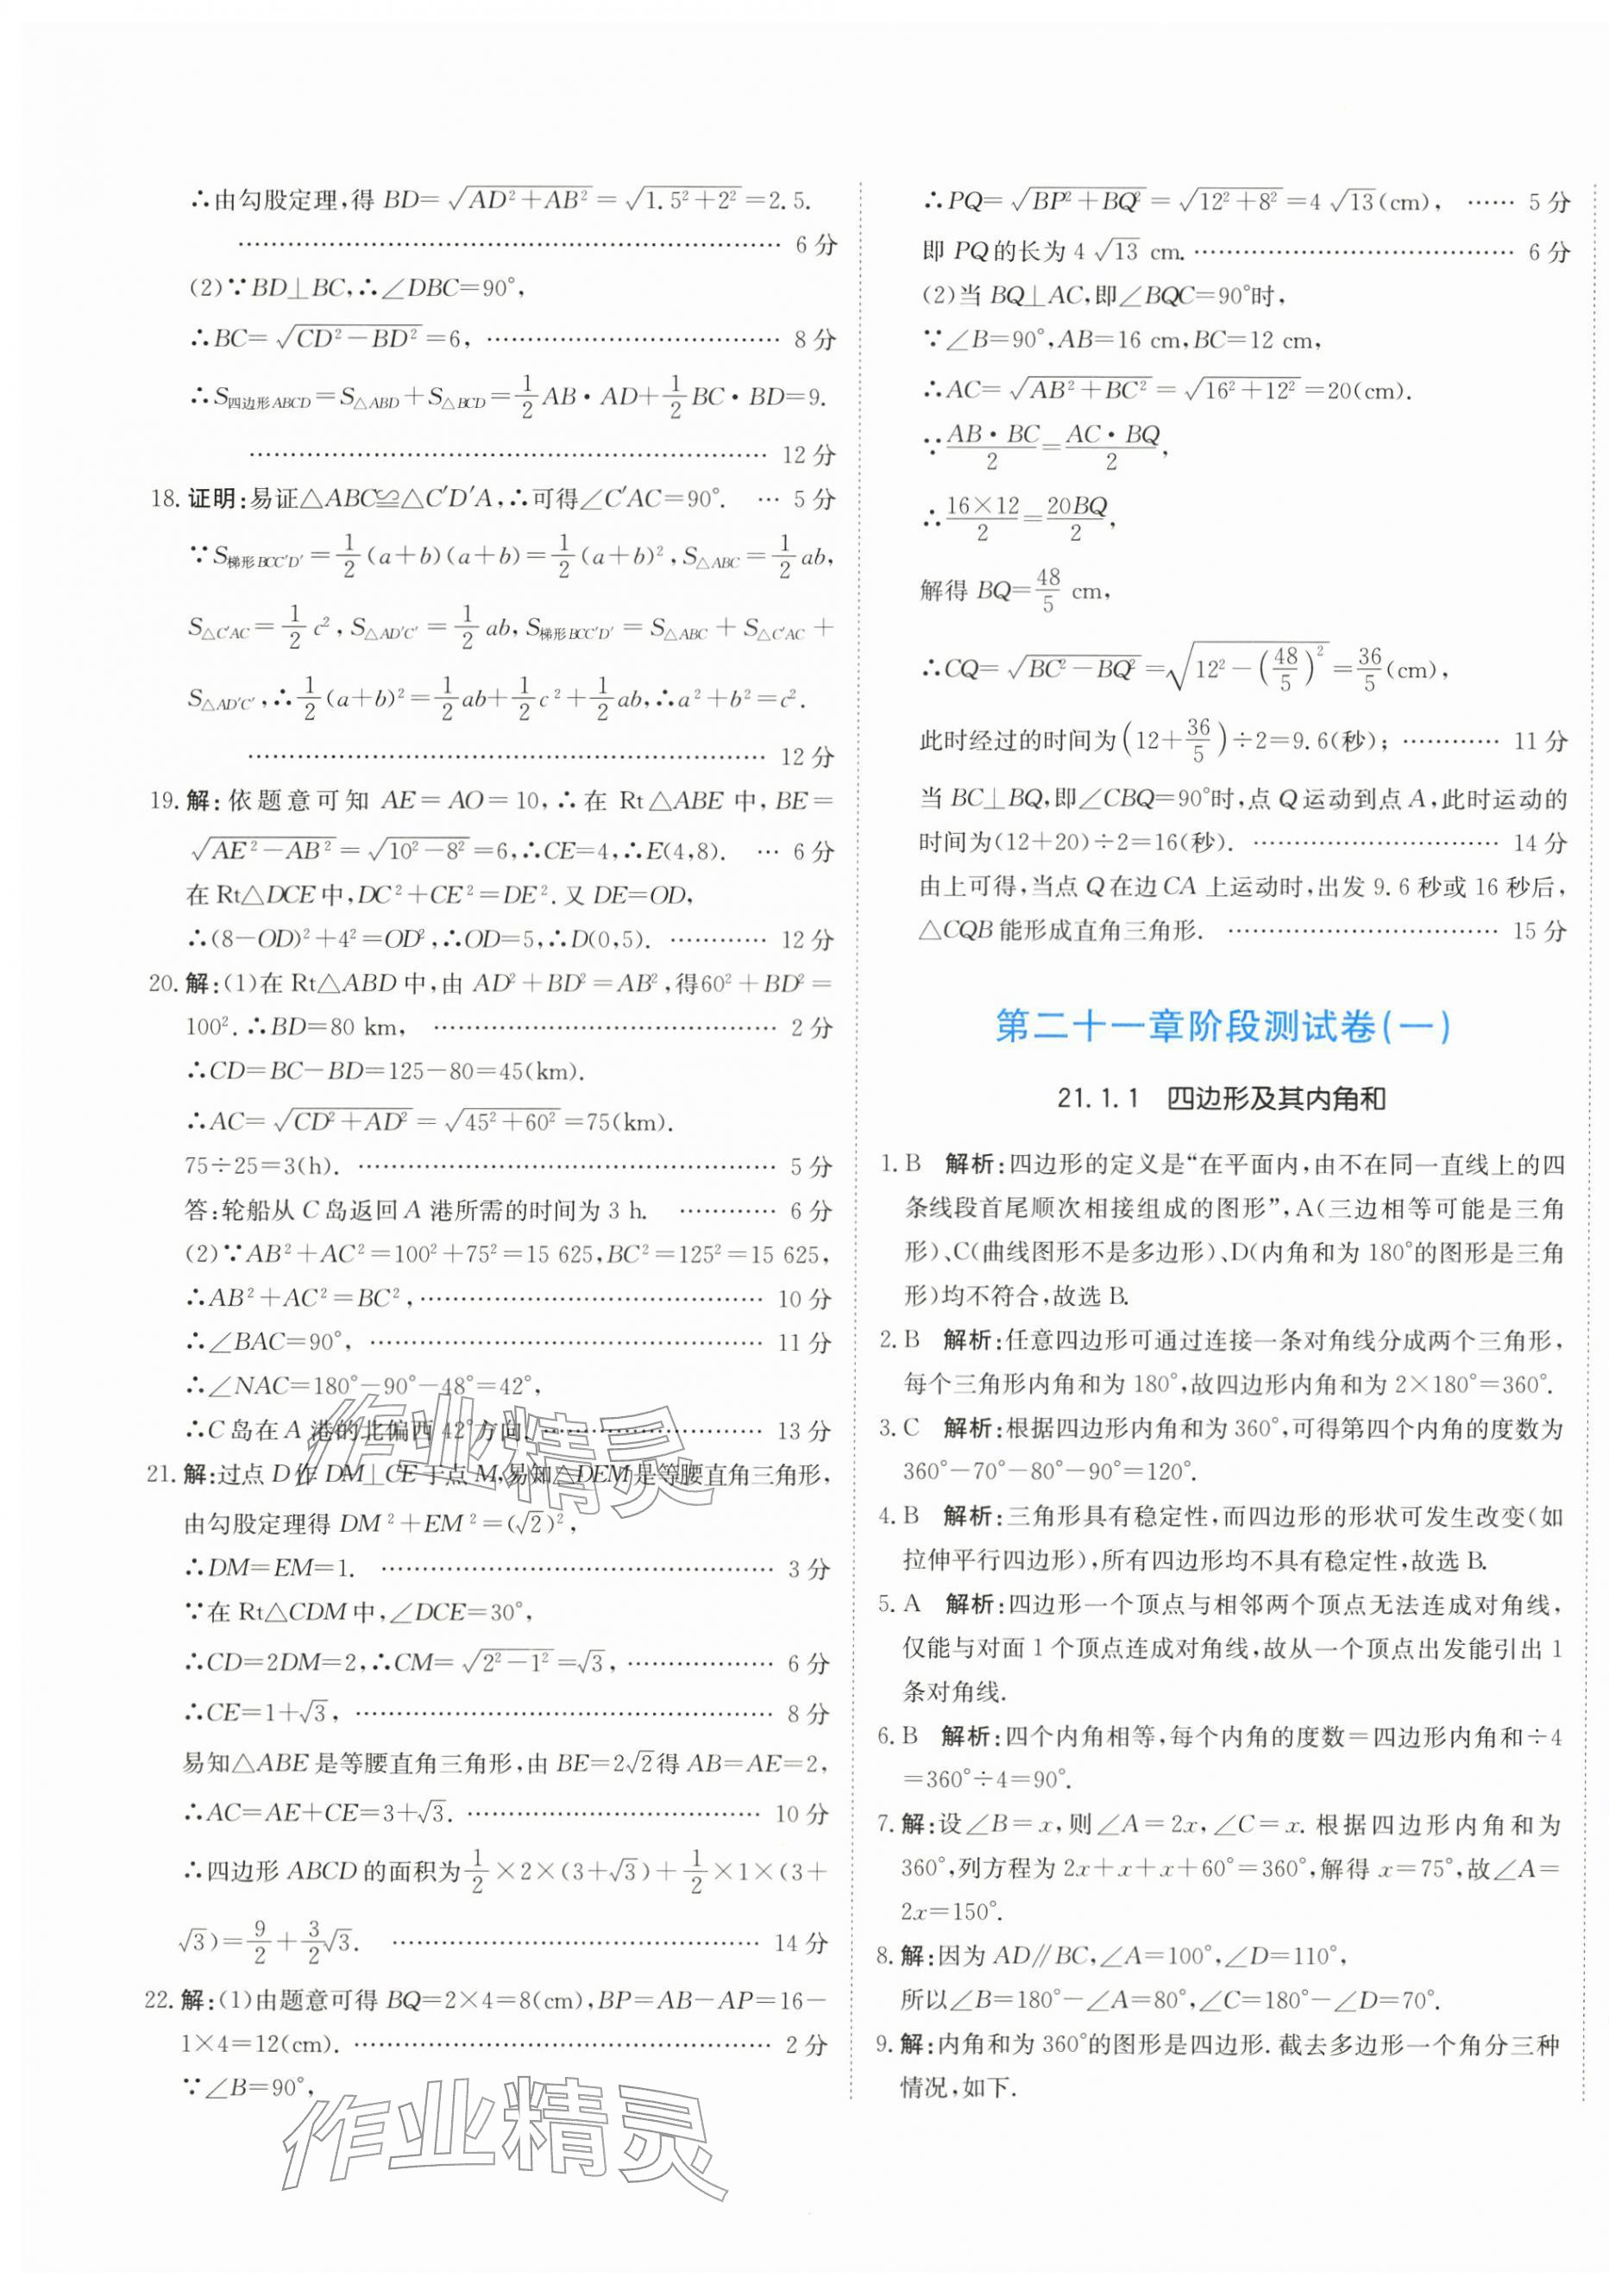 ∴由勾股定理,得 BD=√(AD²+AB²)=√(1.5²+2²)=2.5.
…… 6 分
(2)∵BD⊥BC,∴∠DBC=90°,
∴BC=√(CD²-BD²)=6, …… 8 分
∴S四边形ABCD=S△ABD+S△BCD=1/2 AB·AD+1/2 BC·BD=9.
…… 12 分
18. 证明:易证△ABC≌△C′D′A,∴可得∠C′AC=90°. … 5 分
∵S梯形BCC′D′=1/2(a+b)(a+b)=1/2(a+b)²,S△ABC=1/2 ab,
S△C′AC=1/2 c²,S△AD′C′=1/2 ab,S梯形BCC′D′=S△ABC+S△C′AC+
S△AD′C′,∴1/2(a+b)²=1/2 ab+1/2 c²+1/2 ab,∴a²+b²=c².
…… 12 分
19. 解:依题意可知 AE=AO=10,∴在 Rt△ABE 中,BE=
√(AE²-AB²)=√(10²-8²)=6,∴CE=4,∴E(4,8). … 6 分
在 Rt△DCE 中,DC²+CE²=DE². 又 DE=OD,
∴(8-OD)²+4²=OD²,∴OD=5,∴D(0,5). …… 12 分
20. 解:(1)在 Rt△ABD 中,由 AD²+BD²=AB²,得60²+BD²=
100². ∴BD=80 km, …… 2 分
∴CD=BC-BD=125-80=45(km).
∴AC=√(CD²+AD²)=√(45²+60²)=75(km).
75÷25=3(h). …… 5 分
答:轮船从 C 岛返回 A 港所需的时间为 3 h. …… 6 分
(2)∵AB²+AC²=100²+75²=15 625,BC²=125²=15 625,
∴AB²+AC²=BC², …… 10 分
∴∠BAC=90°, …… 11 分
∴∠NAC=180°-90°-48°=42°,
∴C 岛在 A 港的北偏西 42°方向. …… 13 分
21. 解:过点 D 作 DM⊥CE 于点 M,易知△DEM 是等腰直角三角形,
由勾股定理得 DM²+EM²=(√2)²,
∴DM=EM=1. …… 3 分
∵在 Rt△CDM 中,∠DCE=30°,
∴CD=2DM=2,∴CM=√(2²-1²)=√3, …… 6 分
∴CE=1+√3, …… 8 分
易知△ABE 是等腰直角三角形,由 BE=2√2得 AB=AE=2,
∴AC=AE+CE=3+√3. …… 10 分
∴四边形 ABCD 的面积为1/2×2×(3+√3)+1/2×1×(3+
√3)=9/2+3/2√3. …… 14 分
22. 解:(1)由题意可得 BQ=2×4=8(cm),BP=AB-AP=16-
1×4=12(cm). …… 2 分
∵∠B=90°,
∴PQ=√(BP²+BQ²)=√(12²+8²)=4√13(cm), …… 5 分
即 PQ 的长为 4√13 cm. …… 6 分
(2)当 BQ⊥AC,即∠BQC=90°时,
∵∠B=90°,AB=16 cm,BC=12 cm,
∴AC=√(AB²+BC²)=√(16²+12²)=20(cm).
∵AB·BC/2=AC·BQ/2,
∴16×12/2=20BQ/2,
解得 BQ=48/5 cm,
∴CQ=√(BC²-BQ²)=√(12²-(48/5)²)=36/5(cm),
此时经过的时间为(12+36/5)÷2=9.6(秒); …… 11 分
当 BC⊥BQ,即∠CBQ=90°时,点 Q 运动到点 A,此时运动的
时间为(12+20)÷2=16(秒). …… 14 分
由上可得,当点 Q 在边 CA 上运动时,出发 9.6 秒或 16 秒后,
△CQB 能形成直角三角形. …… 15 分
第二十一章阶段测试卷(一)
21.1.1 四边形及其内角和
1. B 解析:四边形的定义是“在平面内,由不在同一直线上的四
条线段首尾顺次相接组成的图形”,A(三边相等可能是三角
形)、C(曲线图形不是多边形)、D(内角和为 180°的图形是三角
形)均不符合,故选 B.
2. B 解析:任意四边形可通过连接一条对角线分成两个三角形,
每个三角形内角和为 180°,故四边形内角和为 2×180°=360°.
3. C 解析:根据四边形内角和为 360°,可得第四个内角的度数为
360°-70°-80°-90°=120°.
4. B 解析:三角形具有稳定性,而四边形的形状可发生改变(如
拉伸平行四边形),所有四边形均不具有稳定性,故选 B.
5. A 解析:四边形一个顶点与相邻两个顶点无法连成对角线,
仅能与对面 1 个顶点连成对角线,故从一个顶点出发能引出 1
条对角线.
6. B 解析:四个内角相等,每个内角的度数=四边形内角和÷4
=360°÷4=90°.
7. 解:设∠B=x,则∠A=2x,∠C=x. 根据四边形内角和为
360°,列方程为 2x+x+x+60°=360°,解得 x=75°,故∠A=
2x=150°.
8. 解:因为 AD∥BC,∠A=100°,∠D=110°,
所以∠B=180°-∠A=80°,∠C=180°-∠D=70°.
9. 解:内角和为 360°的图形是四边形. 截去多边形一个角分三种
情况,如下.
作业精灵
作业精灵